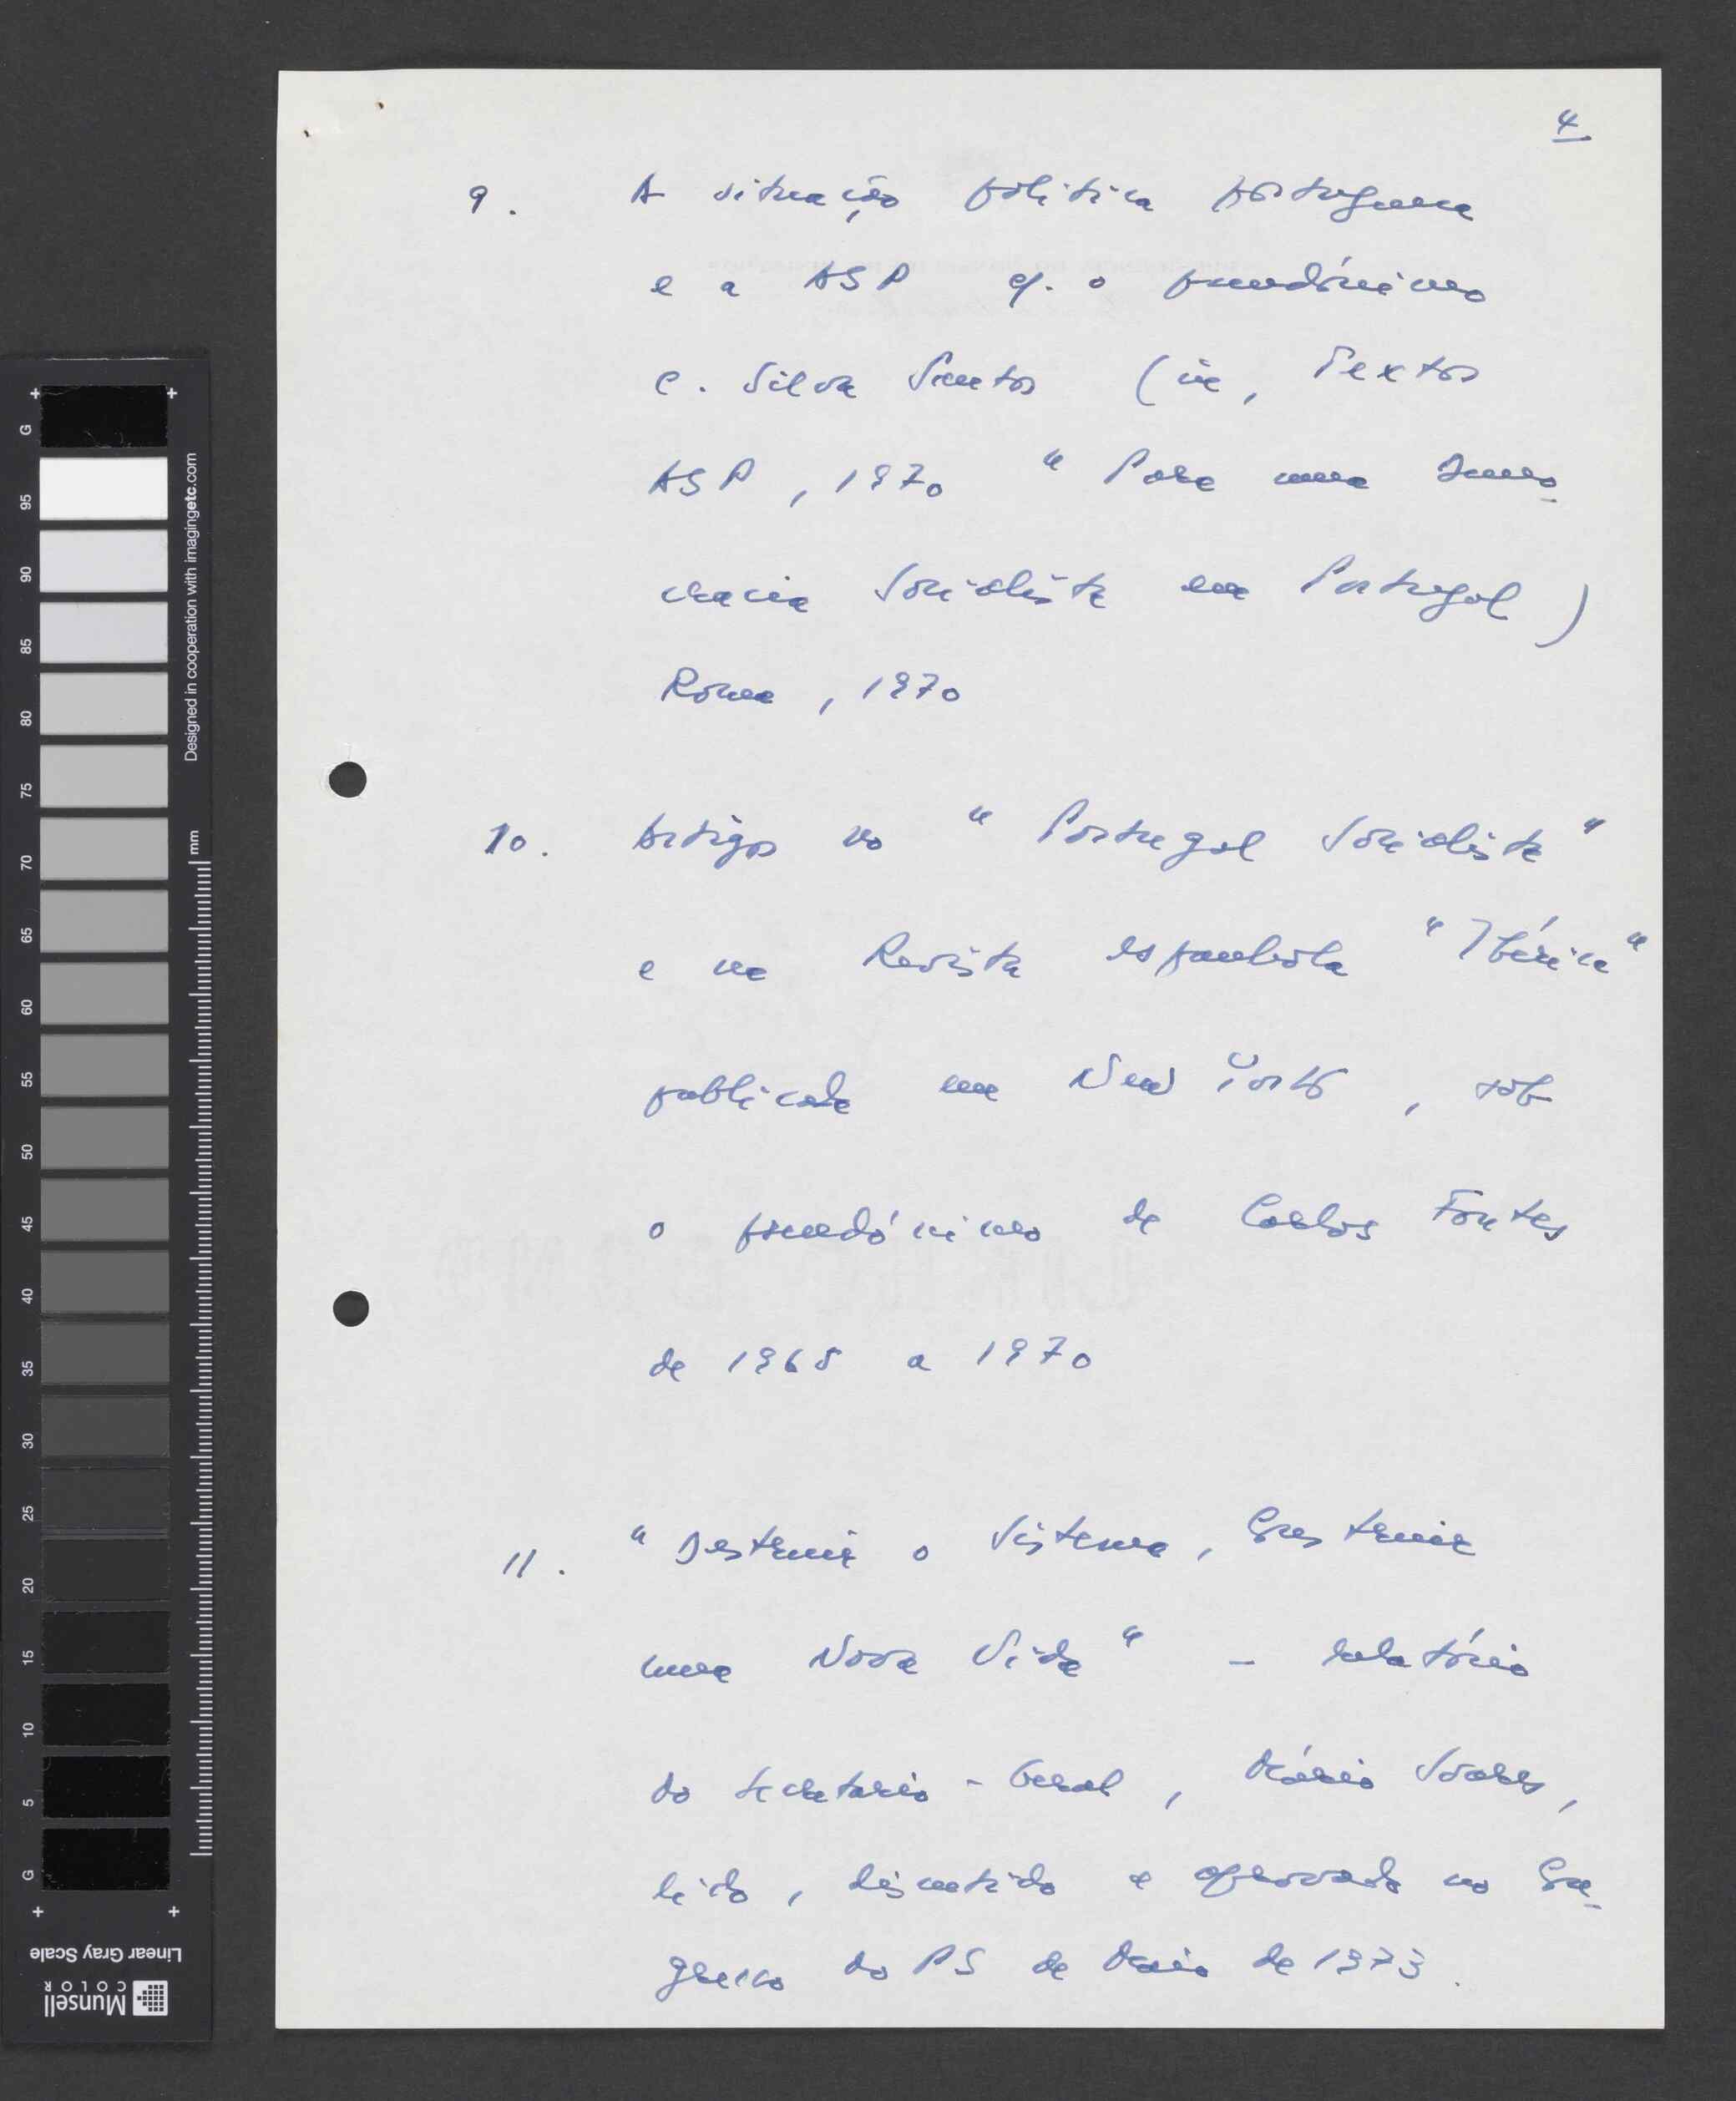 4
9. A situação política portuguesa
e a ASP c/. o pseudónimo
C. Silva Santos (in, Textos
ASP, 1970 " Para uma Demo-
cracia Socialista em Portugal)
Roma, 1970
10. Artigos no " Portugal Socialista "
e na Revista espanhola " Ibérica "
publicada em New York, sob
o pseudónimo de Carlos Fontes
de 1968 a 1970
11. " Destruir o Sistema, Construir
uma Nova Vida " - relatório
do Secretario-Geral, Mário Soares,
lido, discutido e aprovado no Con-
gresso do PS de Maio de 1973.
Designed in cooperation with imagingetc.com
mm
G
95
90
85
80
75
70
65
60
55
50
45
40
35
30
25
20
15
10
5
G
Linear Gray Scale
Munsell
COLOR